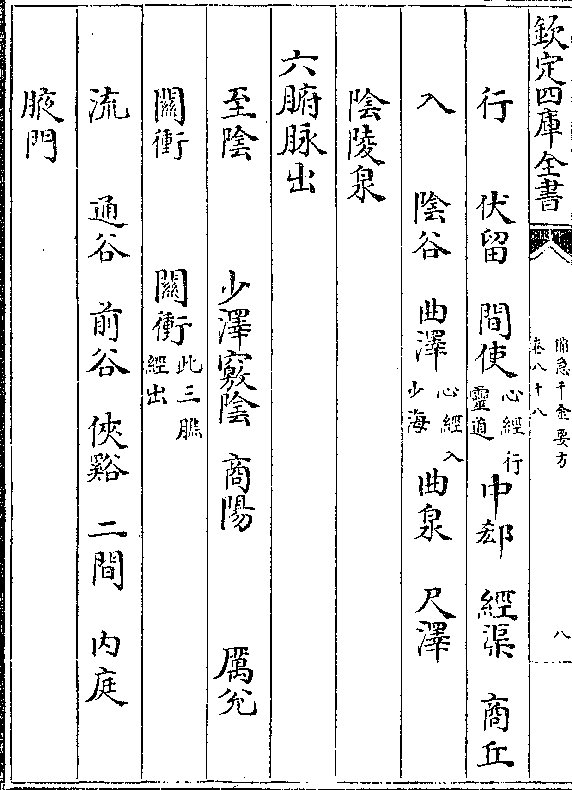 欽定四庫全書 備急千金要方 卷八十八 八
行 伏留 間使 心經行靈道 中郄 經渠 商丘
入 陰谷 曲澤 心經入少海 曲泉 尺澤
陰陵泉
六腑脉出
至陰 少澤 竅陰 商陽 厲兊
關衝 關衝 此三膲經出
流 通谷 前谷 俠谿 二間 内庭
腋門